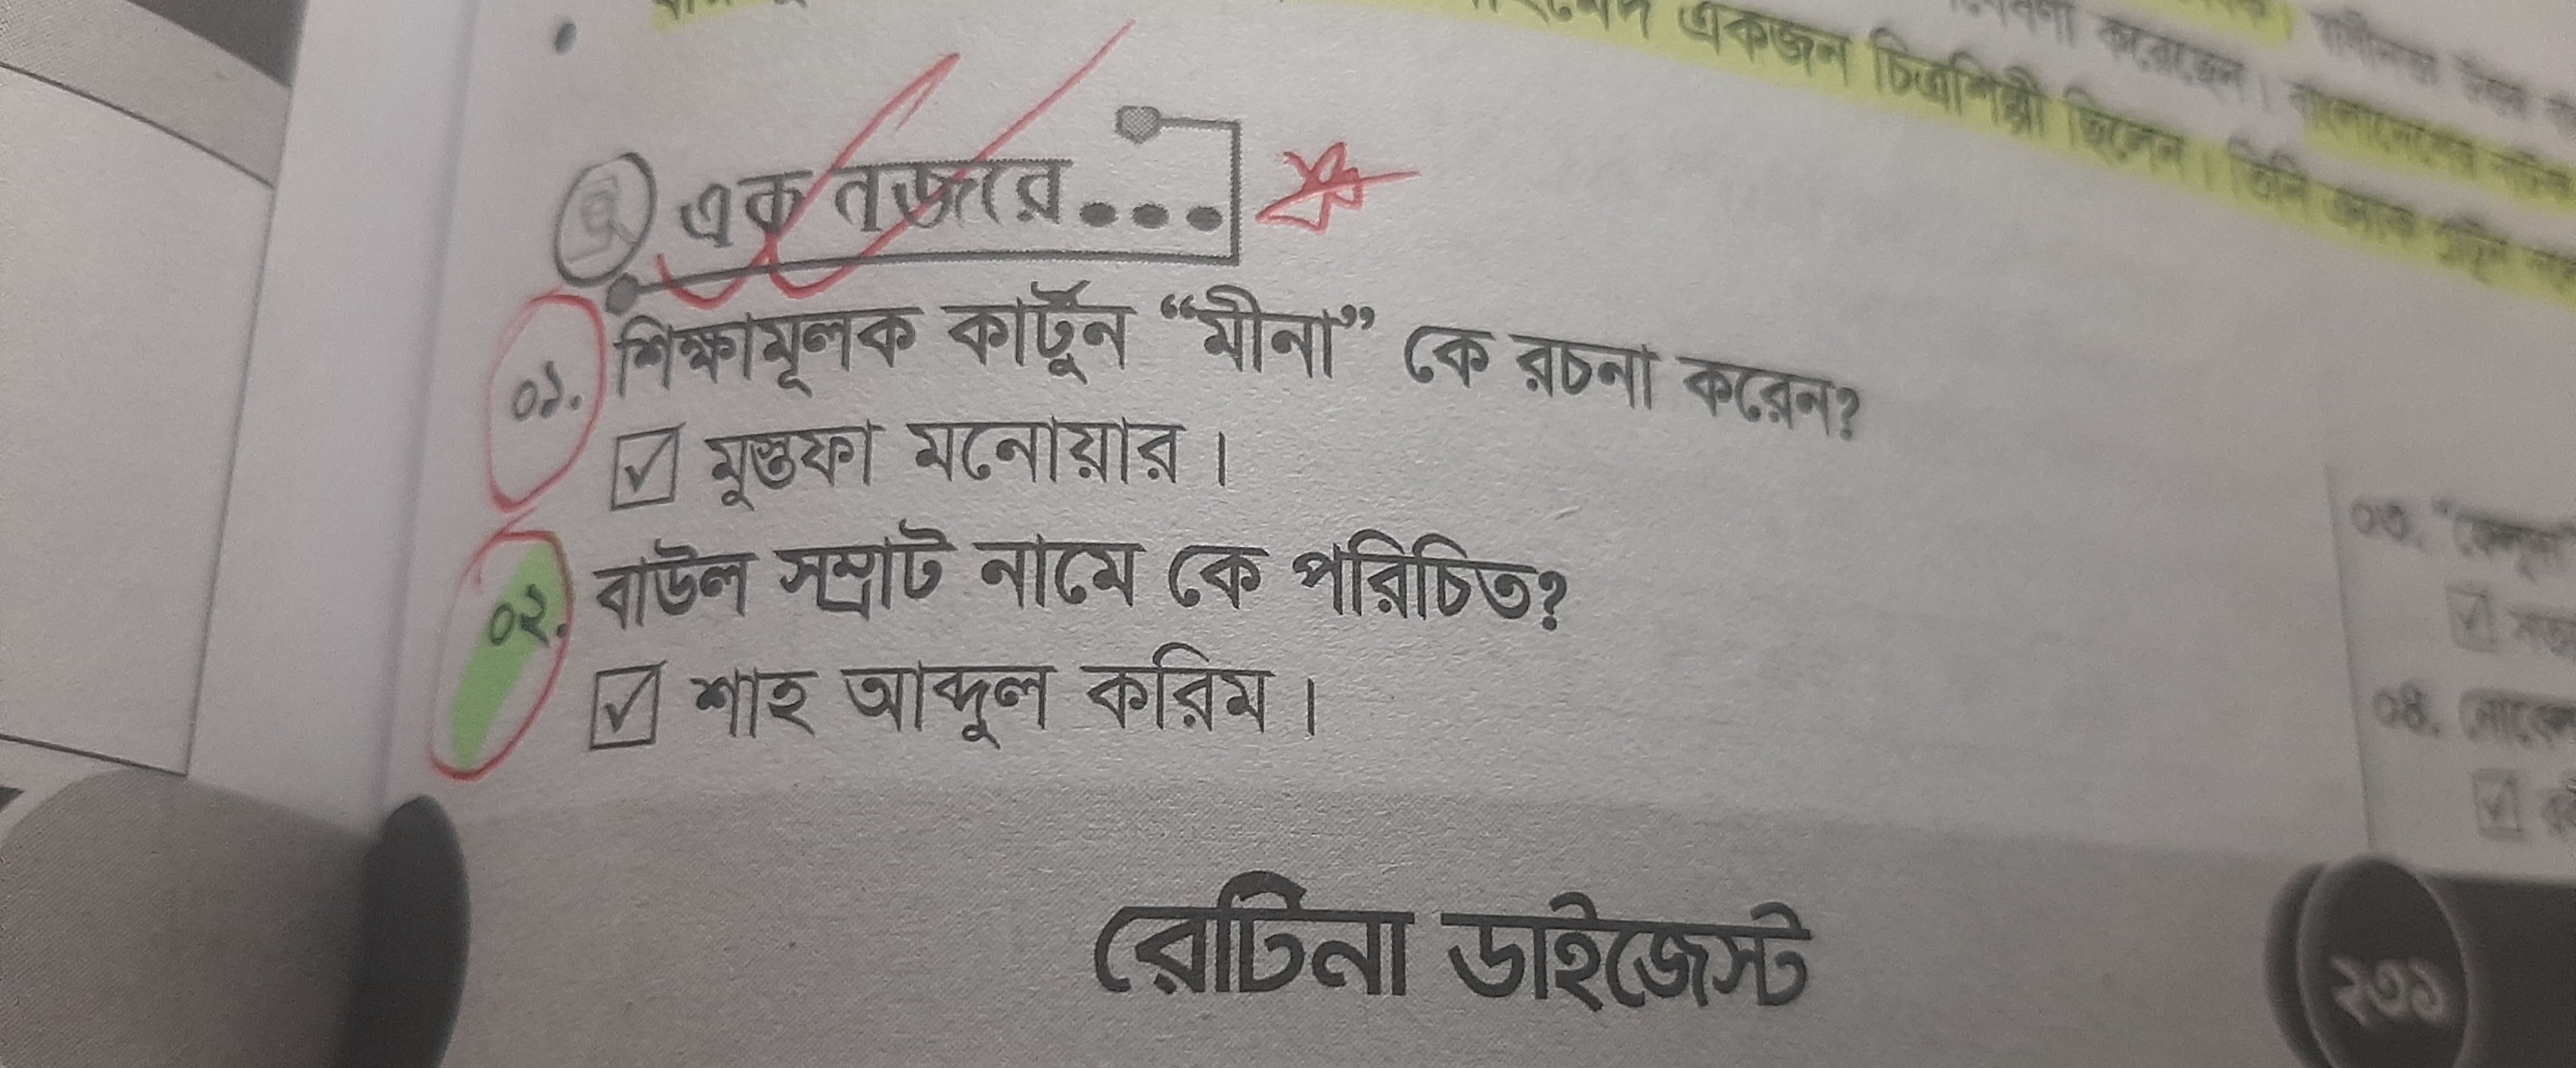 একজন চিত্রশিল্পী ছিলেন। তিনি
করেছেন।
এক নজরে...
০১. শিক্ষামূলক কার্টুন “মীনা” কে রচনা করেন?
মুস্তফা মনোয়ার।
০২. বাউল সম্রাট নামে কে পরিচিত?
শাহ আব্দুল করিম।
০৩.
০৪.
রেটিনা ডাইজেস্ট
২৩১